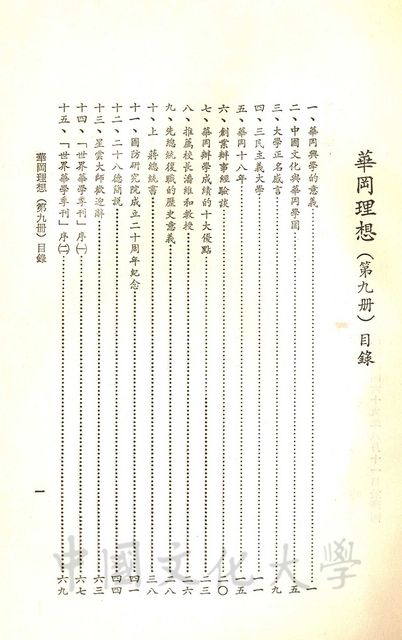 華岡理想（第九册）目錄
一、華岡興學的意義………一
二、中國文化與華岡學園………五
三、大學正名感言………九
四、三民主義大學………一一
五、華岡十八年………一五
六、創業辦事經驗談………二〇
七、華岡辦學成績的十大優點………二三
八、推薦校長潘維和教授………二六
九、先總統復職的歷史意義………二八
十、上　蔣總統書………三八
十一、國防研究院成立二十周年紀念………四一
十二、二十八德簡説………四四
十三、星雲大師歡迎辭………六三
十四、「世界華學季刊」序㈠………六七
十五、「世界華學季刊」序㈡………六九
華岡理想（第九册）目錄
一
中國文化大學